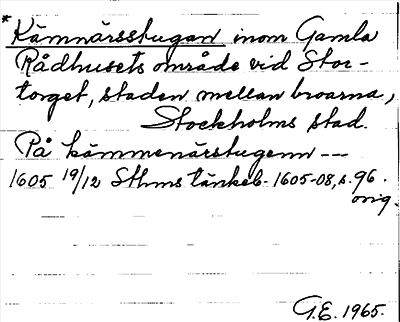 *Kämnärsstugan inom Gamla
Rådhusets område vid Stor-
torget, staden mellan broarna,
Stockholms stad.
På kämmenärstugenn ---
1605 19/12 Sthms tänkeb. 1605-08, s. 96.
orig.
G.E. 1965.